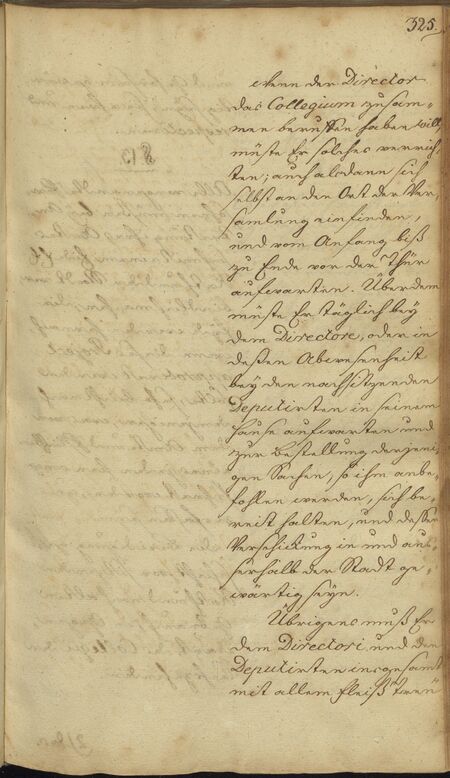 325.
Wenn der Director
das Collegium zusam-
men beruffen haben will,
müste Er solches verrich-
ten; auch alsdann sich
selbst an den Ort der Ver-
samlung einfinden,
und vom Anfang biß
zu Ende vor der Thür
aufwarten. Überdem
müste Er täglich bey
dem Directore, oder in
deßen Abwesenheit
bey den nachsitzenden
Deputirten in seinem
Hause aufwarten und
zur Bestellung derjeni-
gen Sachen, so ihm anbe-
fohlen werden, sich be-
reit halten, und deßen
Verschickung in und aus-
serhalb der Stadt ge-
wärtig seyn.
Übrigens muß Er
dem Directori und den
Deputirten insgesamt
mit allem Fleiß treu